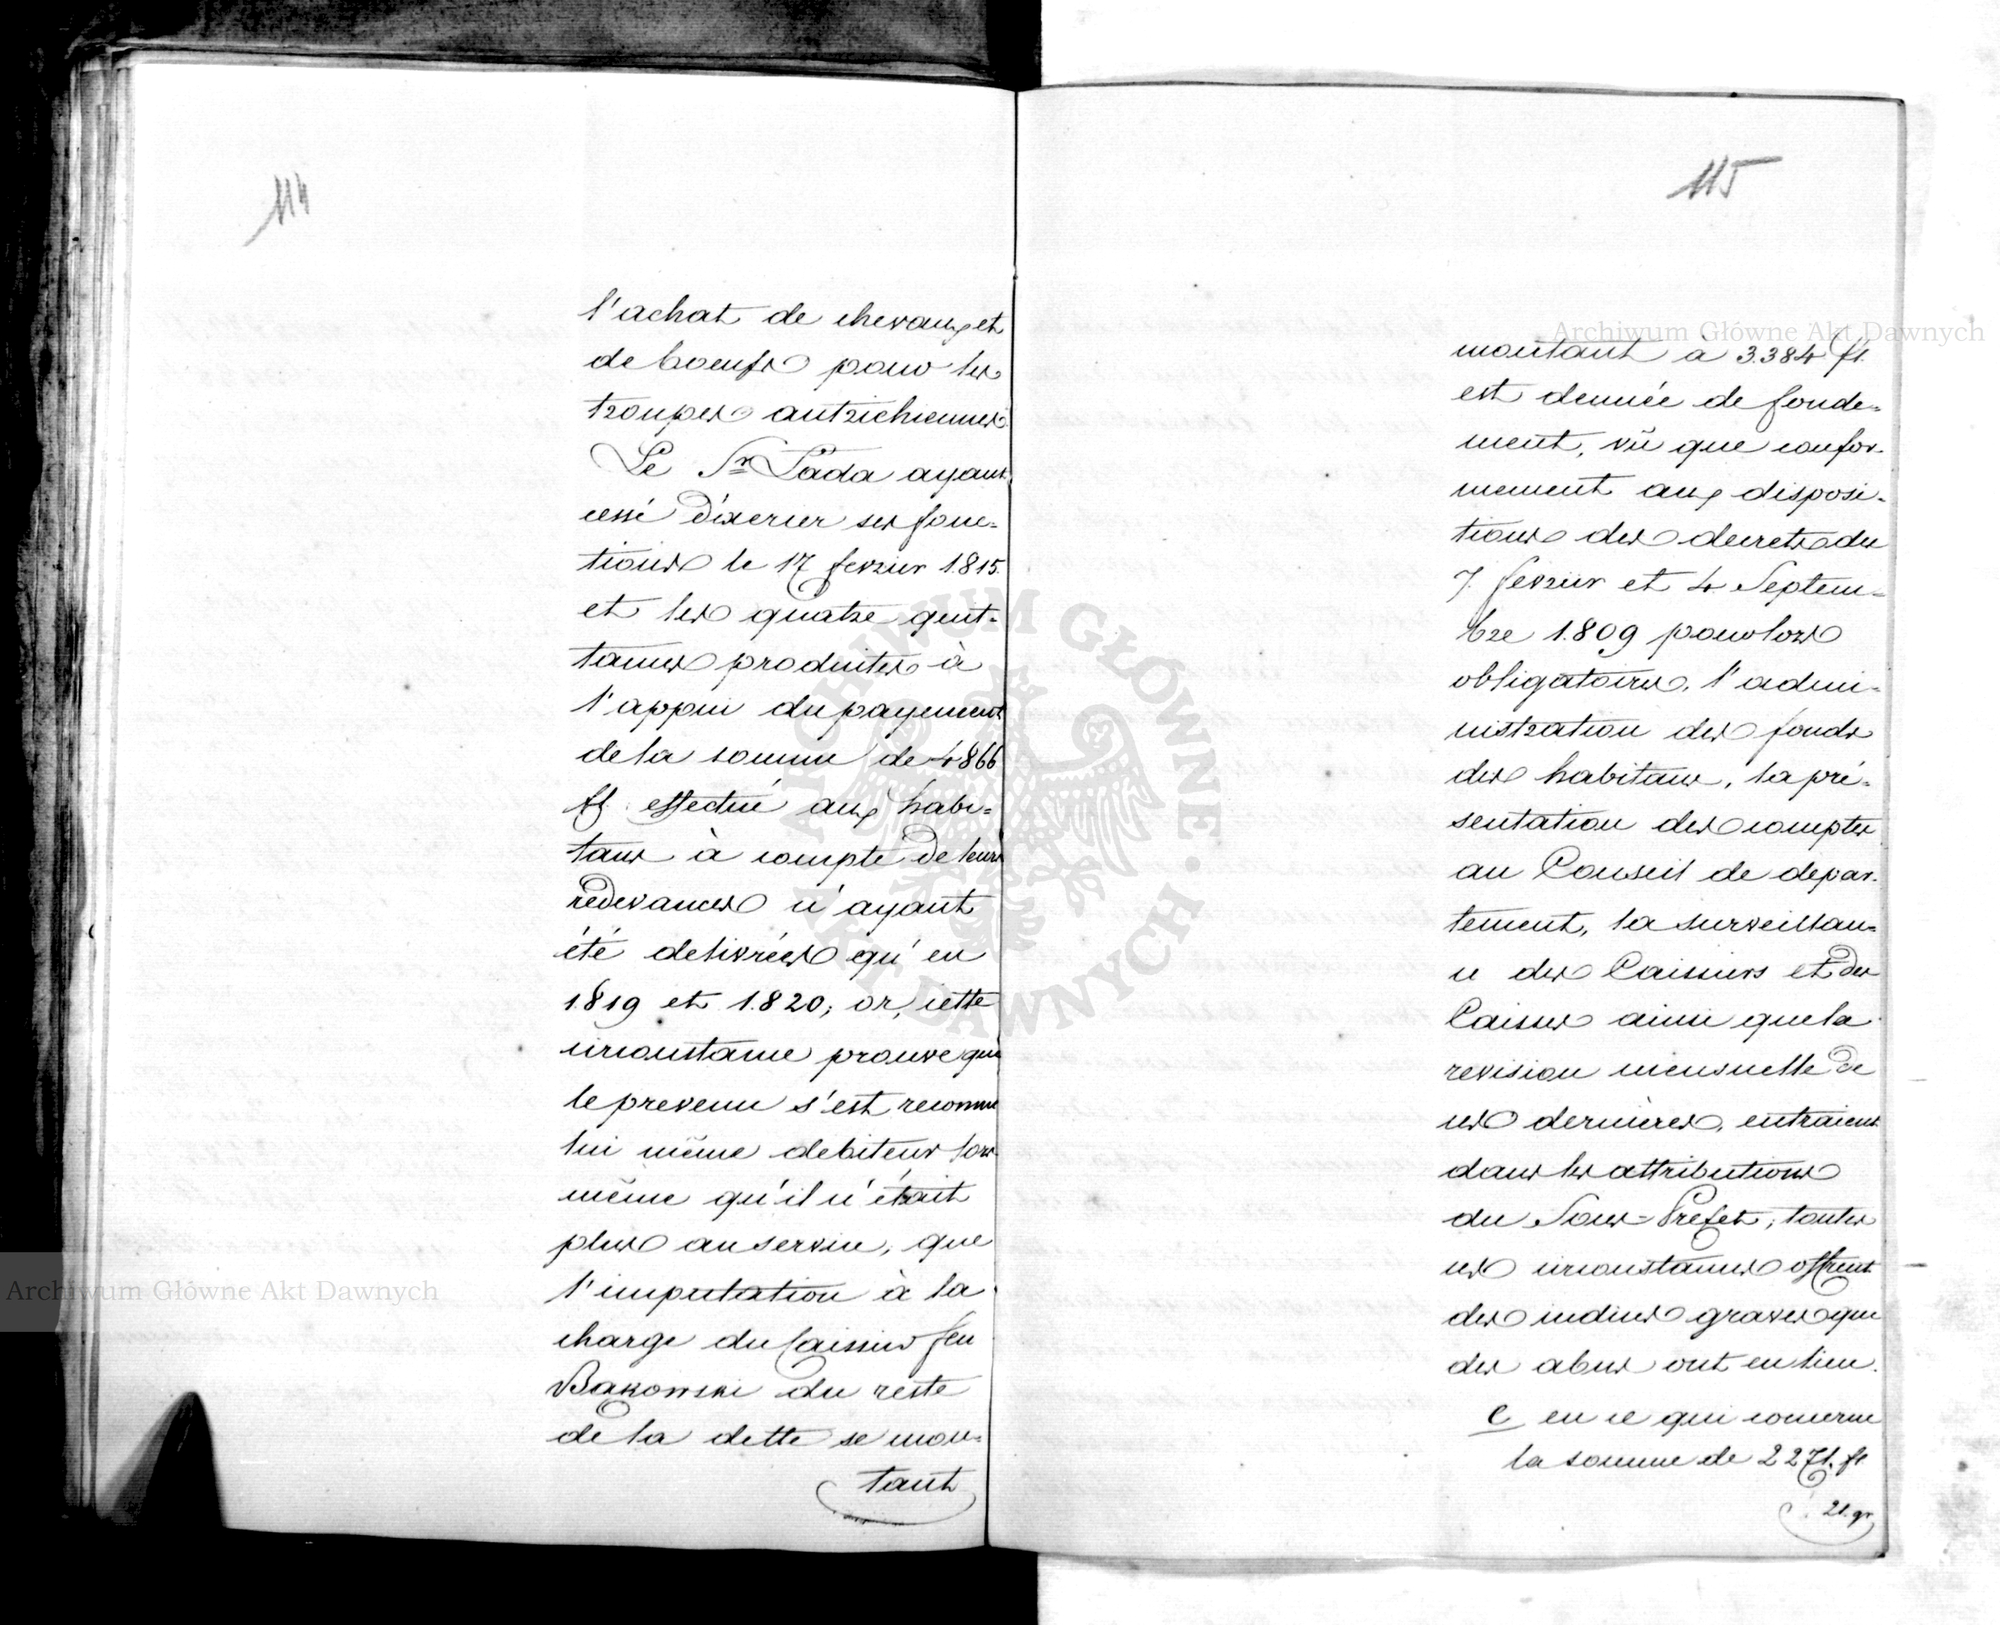 114
l'achat de chevaux et
de boeufs pour les
troupes autrichiennes.
Le Sr Lada ayant
cessé d'exercer ses fonc=
tions le 17 fevrier 1815.
et les quatre quit=
tances produites à
l'appui du payement
de la somme de 4866
fl. effectué aux habi=
tans à compte de leurs
redevances n'ayant
été delivrées qu'en
1819 et 1820; or, cette
circonstance prouve que
le prevenu s'est reconnu
lui même debiteur lors
même qu'il n'était
plus au service, que
l'imputation à la
charge du Caissier feu
Bakowski du reste
de la dette se mon=
tant
115
montant à 3.384 fl.
est denuée de fonde=
ment, vû que confor=
mement aux disposi=
tions des decrets du
7. fevrier et 4 Septem=
bre 1.809 pour lors
obligatoires, l'admi=
nistration des fonds
des habitans, la pré=
sentation des comptes
au Conseil de depar=
tement, la surveillan=
ce des Caissiers et des
Caisses ainsi que la
revision mensuelle de
ces dernieres, entraient
dans les attributions
du Sous=Prefet; toutes
ces circonstances offrent
des indices graves que
des abus ont eu lieu.
C en ce qui concerne
la somme de 2271. fl.
21. gr.
Archiwum Główne Akt Dawnych
Archiwum Główne Akt Dawnych
ARCHIWUM GŁÓWNE · AKT DAWNYCH ·